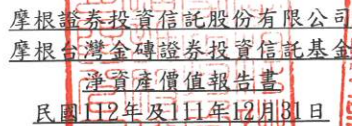 摩根證券投資信託股份有限公司
摩根台灣金磚證券投資信託基金
淨資產價值報告書
民國112年及111年12月31日